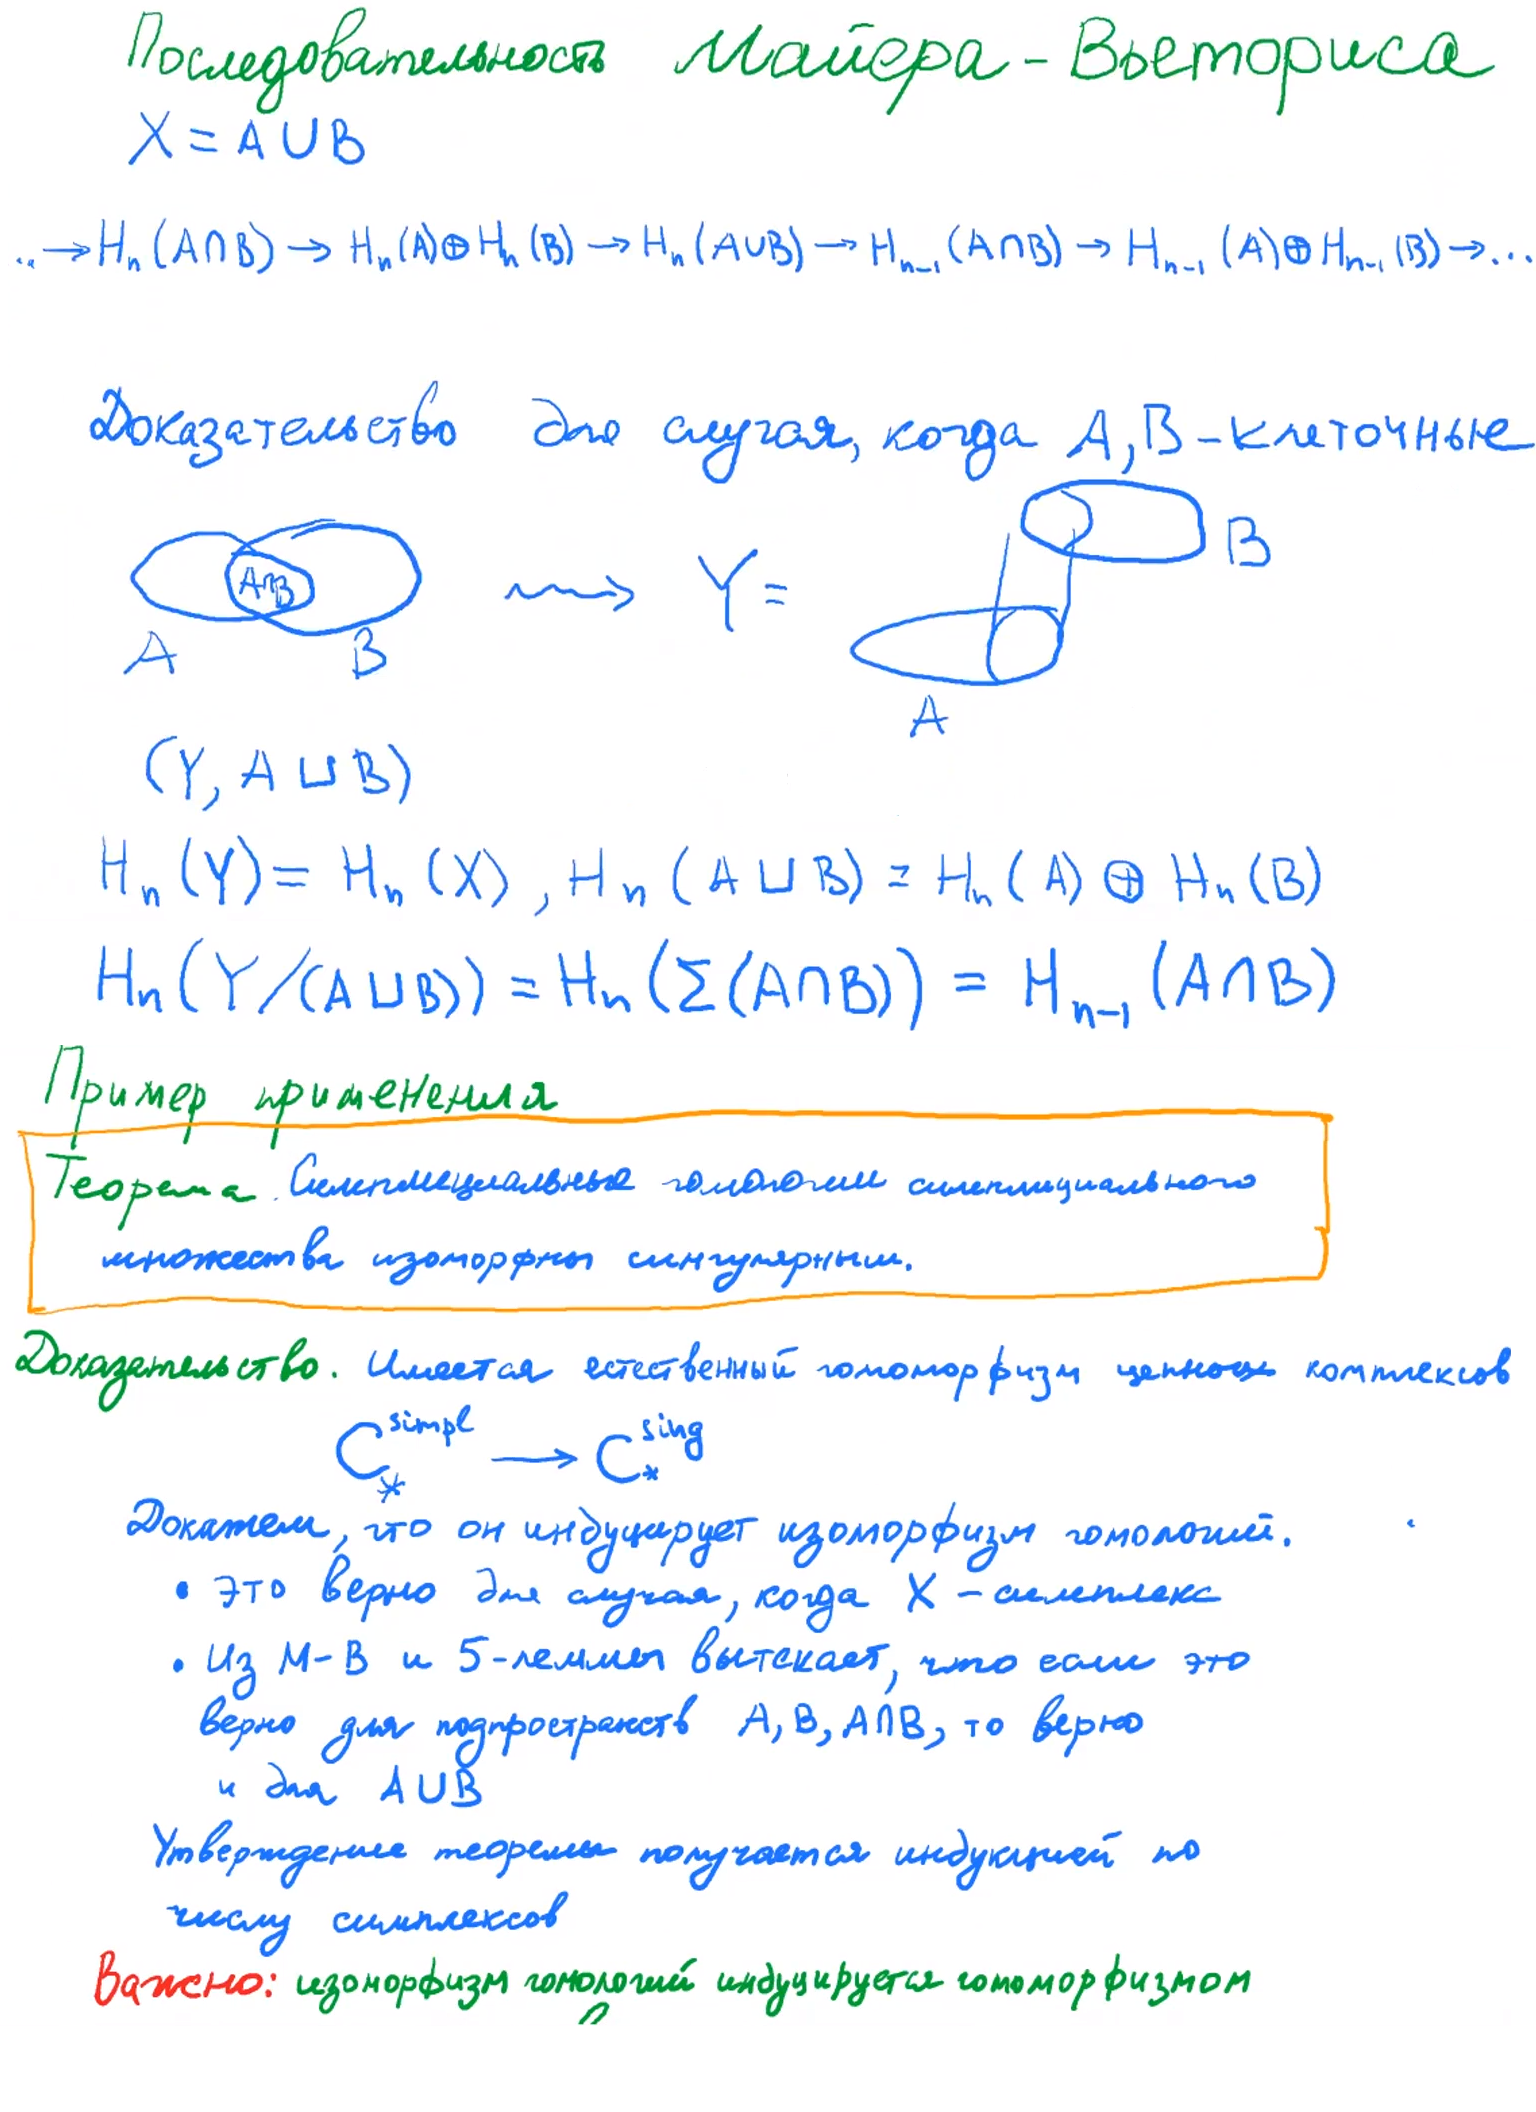 Последовательность Майера-Вьеториса
X = A ∪ B
.. → Hₙ(A∩B) → Hₙ(A)⊕Hₙ(B) → Hₙ(A∪B) → Hₙ₋₁(A∩B) → Hₙ₋₁(A)⊕Hₙ₋₁(B) → ...
Доказательство для случая, когда A, B - клеточные
A∩B
A
B
Y =
B
A
(Y, A ⊔ B)
Hₙ(Y) = Hₙ(X), Hₙ(A ⊔ B) = Hₙ(A) ⊕ Hₙ(B)
Hₙ(Y/(A⊔B)) = Hₙ(Σ(A∩B)) = Hₙ₋₁(A∩B)
Пример применения
Теорема. Симплициальные гомологии симплициального
множества изоморфны сингулярным.
Доказательство. Имеется естественный гомоморфизм цепных комплексов
C_*^{simpl} → C_*^{sing}
Докажем, что он индуцирует изоморфизм гомологий.
• Это верно для случая, когда X - симплекс
• Из М-В и 5-леммы вытекает, что если это
верно для подпространств A, B, A∩B, то верно
и для A∪B
Утверждение теоремы получается индукцией по
числу симплексов
Важно: изоморфизм гомологий индуцируется гомоморфизмом